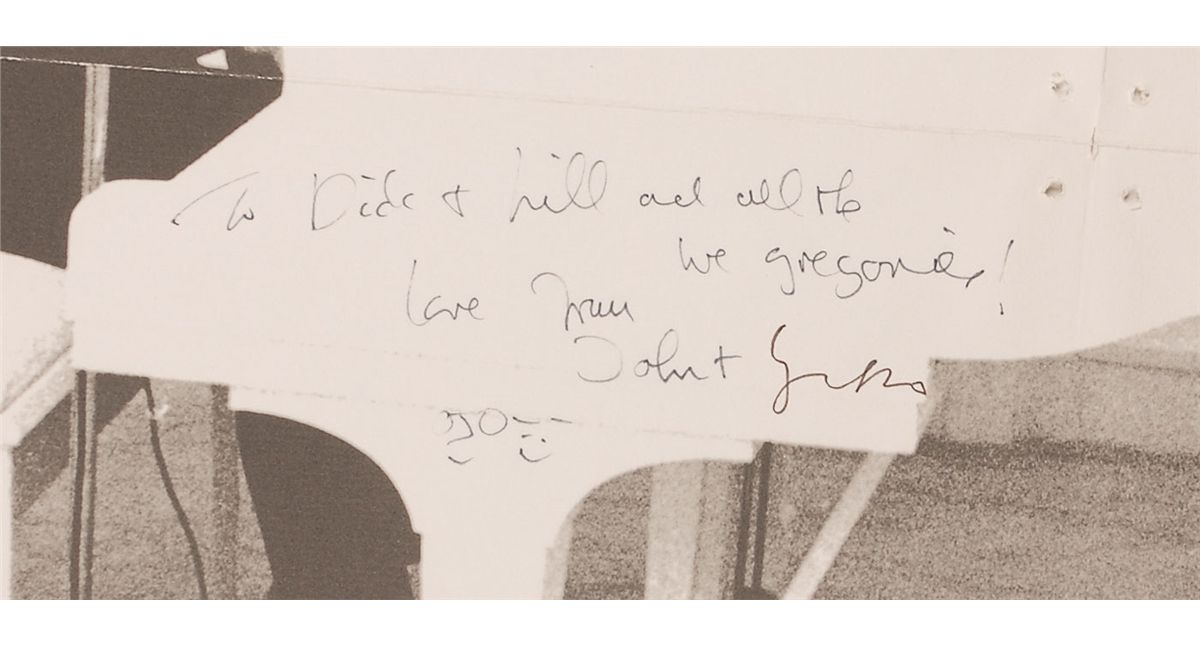 To Dick + Lill and all the
we gregories!
love from
John + Yoko